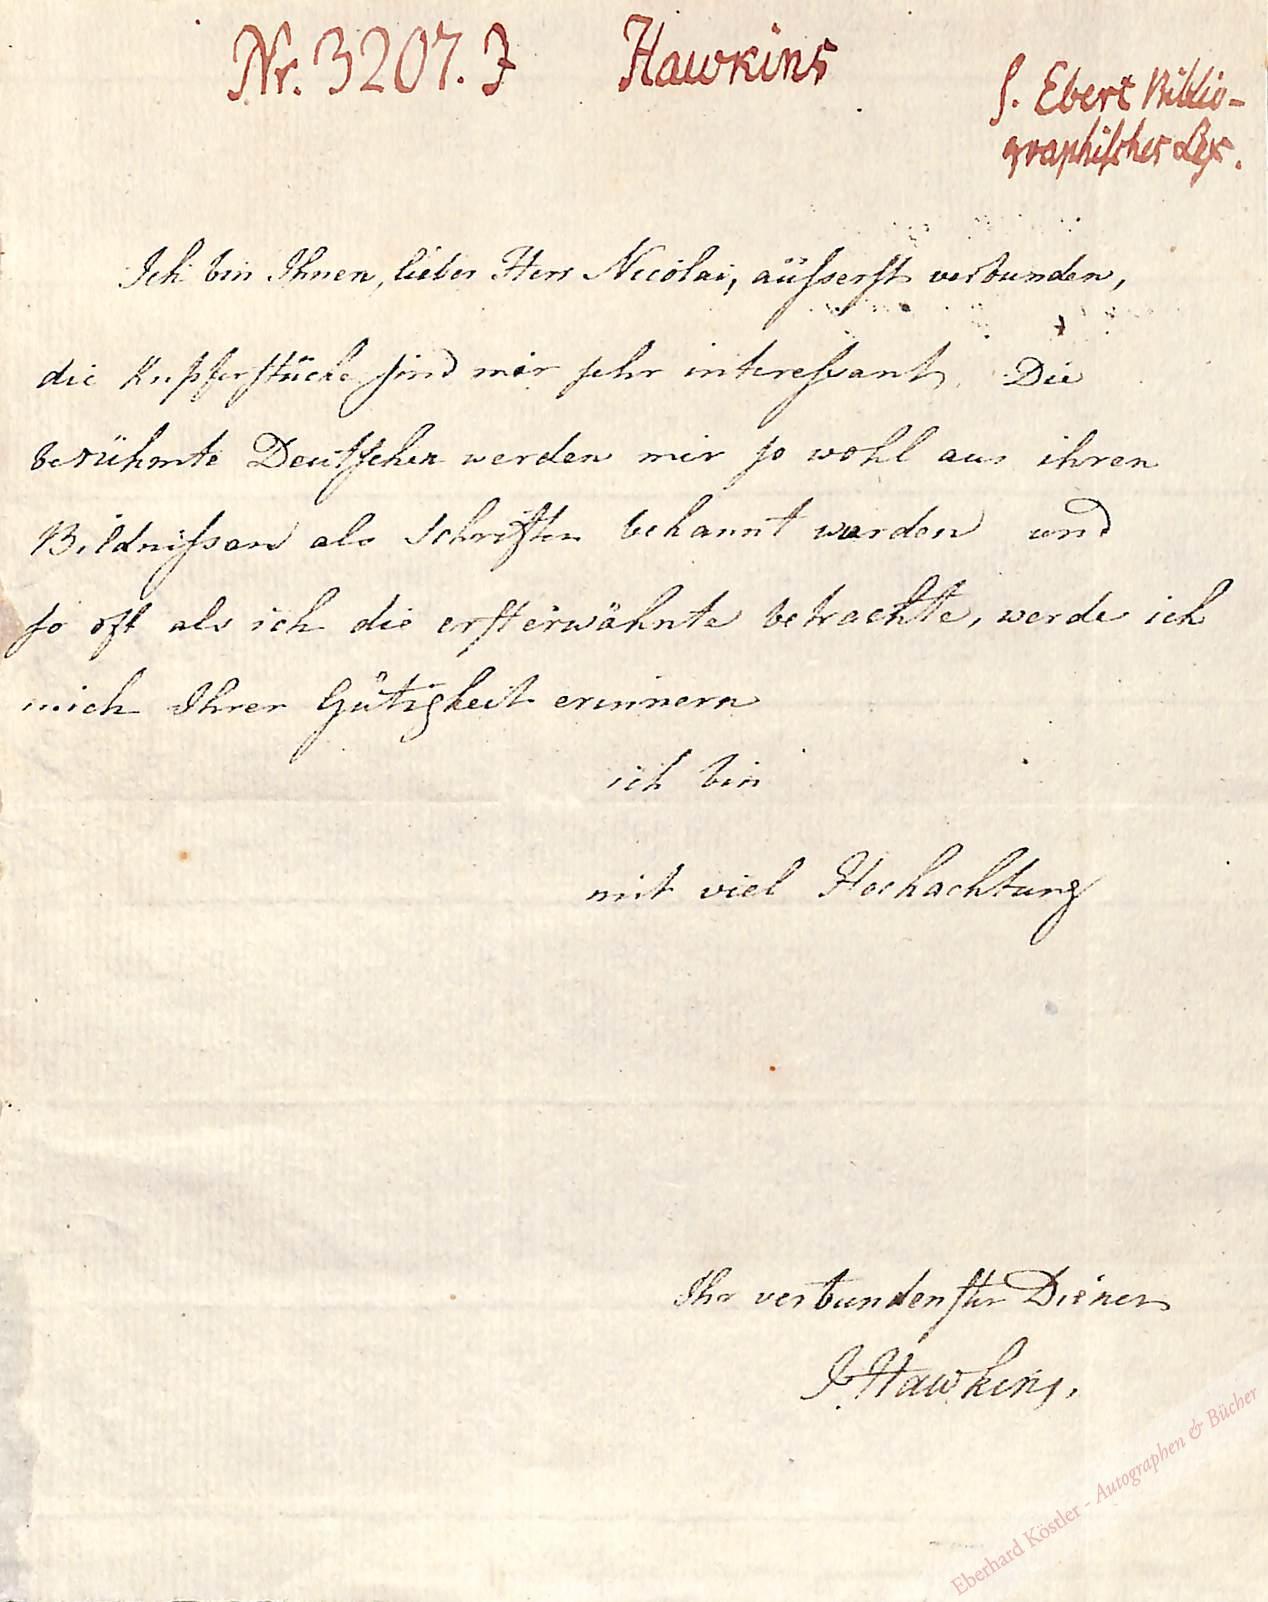 Nr. 3207. J Hawkins
S. Ebert Biblio-
graphisches Lex.
Ich bin Ihnen, lieber Herr Nicolai, äüsserst verbunden,
die Kupferstücke sind mir sehr interessant. Die
berühmte Deutschen werden mir so wohl aus ihren
Bildnissen als Schriften bekannt werden und
so oft als ich die ersterwähnte betrachte, werde ich
mich Ihrer Gütigkeit erinnern
ich bin
mit viel Hochachtung
Ihr verbundenster Diener
J. Hawkins.
Eberhard Köstler - Autographen & Bücher